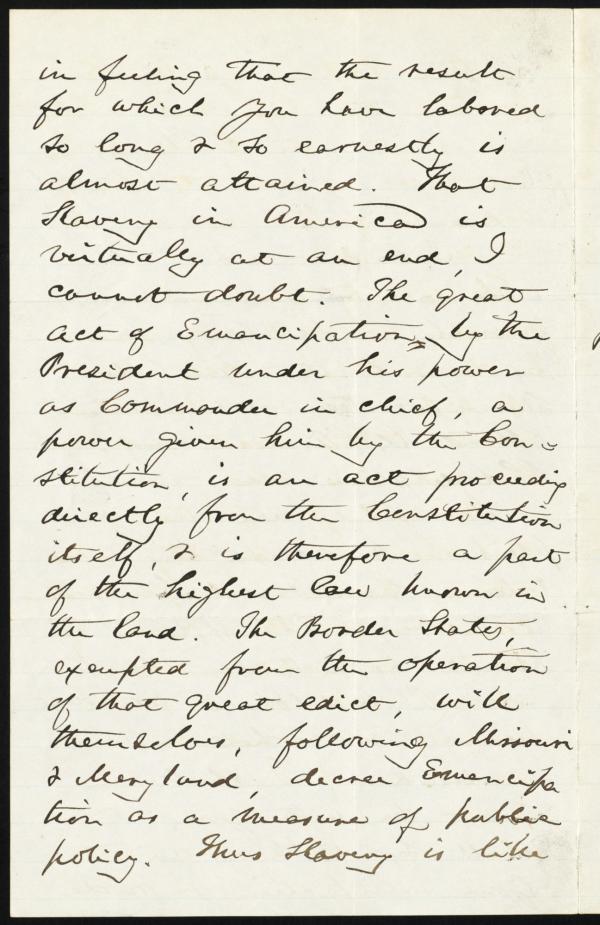 in feeling that the result
for which you have labored
so long & so earnestly is
almost attained. That
Slavery in America is
virtually at an end, I
cannot doubt. The great
act of Emancipation, by the
President under his power
as Commander in chief, a
power given him by the Con=
stitution, is an act proceeding
directly from the Constitution
itself, & is therefore a part
of the highest law known in
the land. The Border States,
exempted from the operation
of that great edict, will
themselves, following Missouri
& Maryland, decree Emancipa
tion as a measure of public
policy. Thus Slavery is like